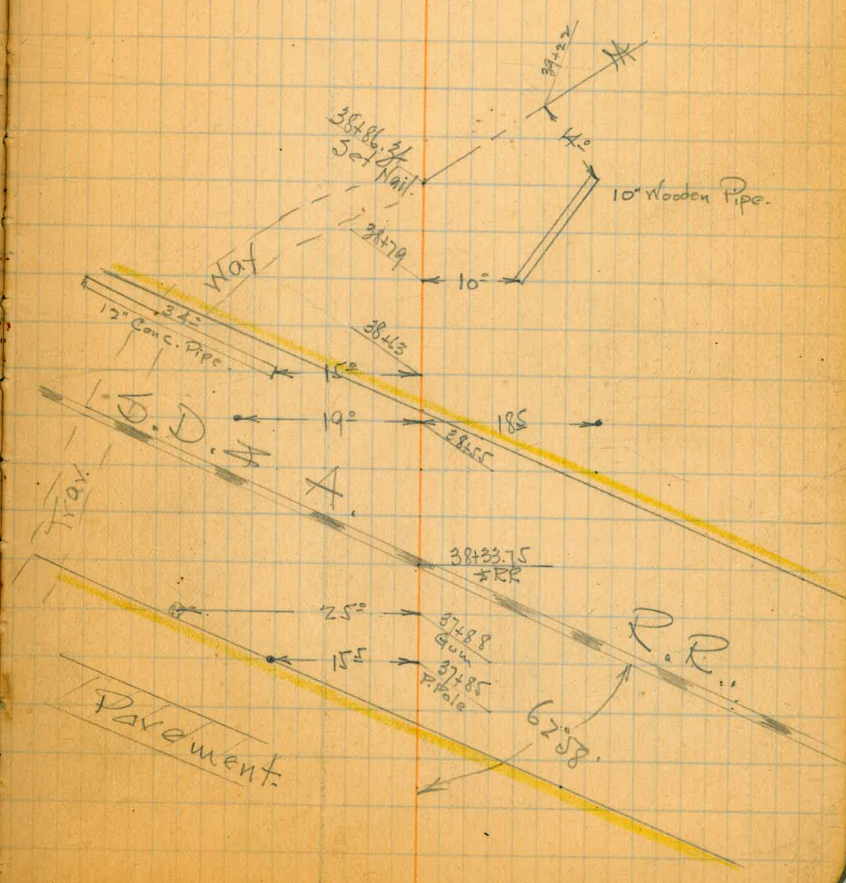 39+22
38+86.34
Set Nail.
14⁰
10" Wooden Pipe.
38+79
10⁰
Way
34⁰
12" Conc. Pipe.
38+63
15⁰
19⁰
185
38+55
S. D. & A.
R.R.
Trav.
38+33.75
RR
25⁰
37+88
Gum
15⁵
37+85
P. Pole
62°58'
Pavement.